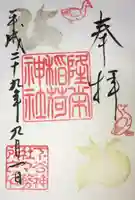 奉拝
隆栄
稲荷
神社
平成二十九年九月一日